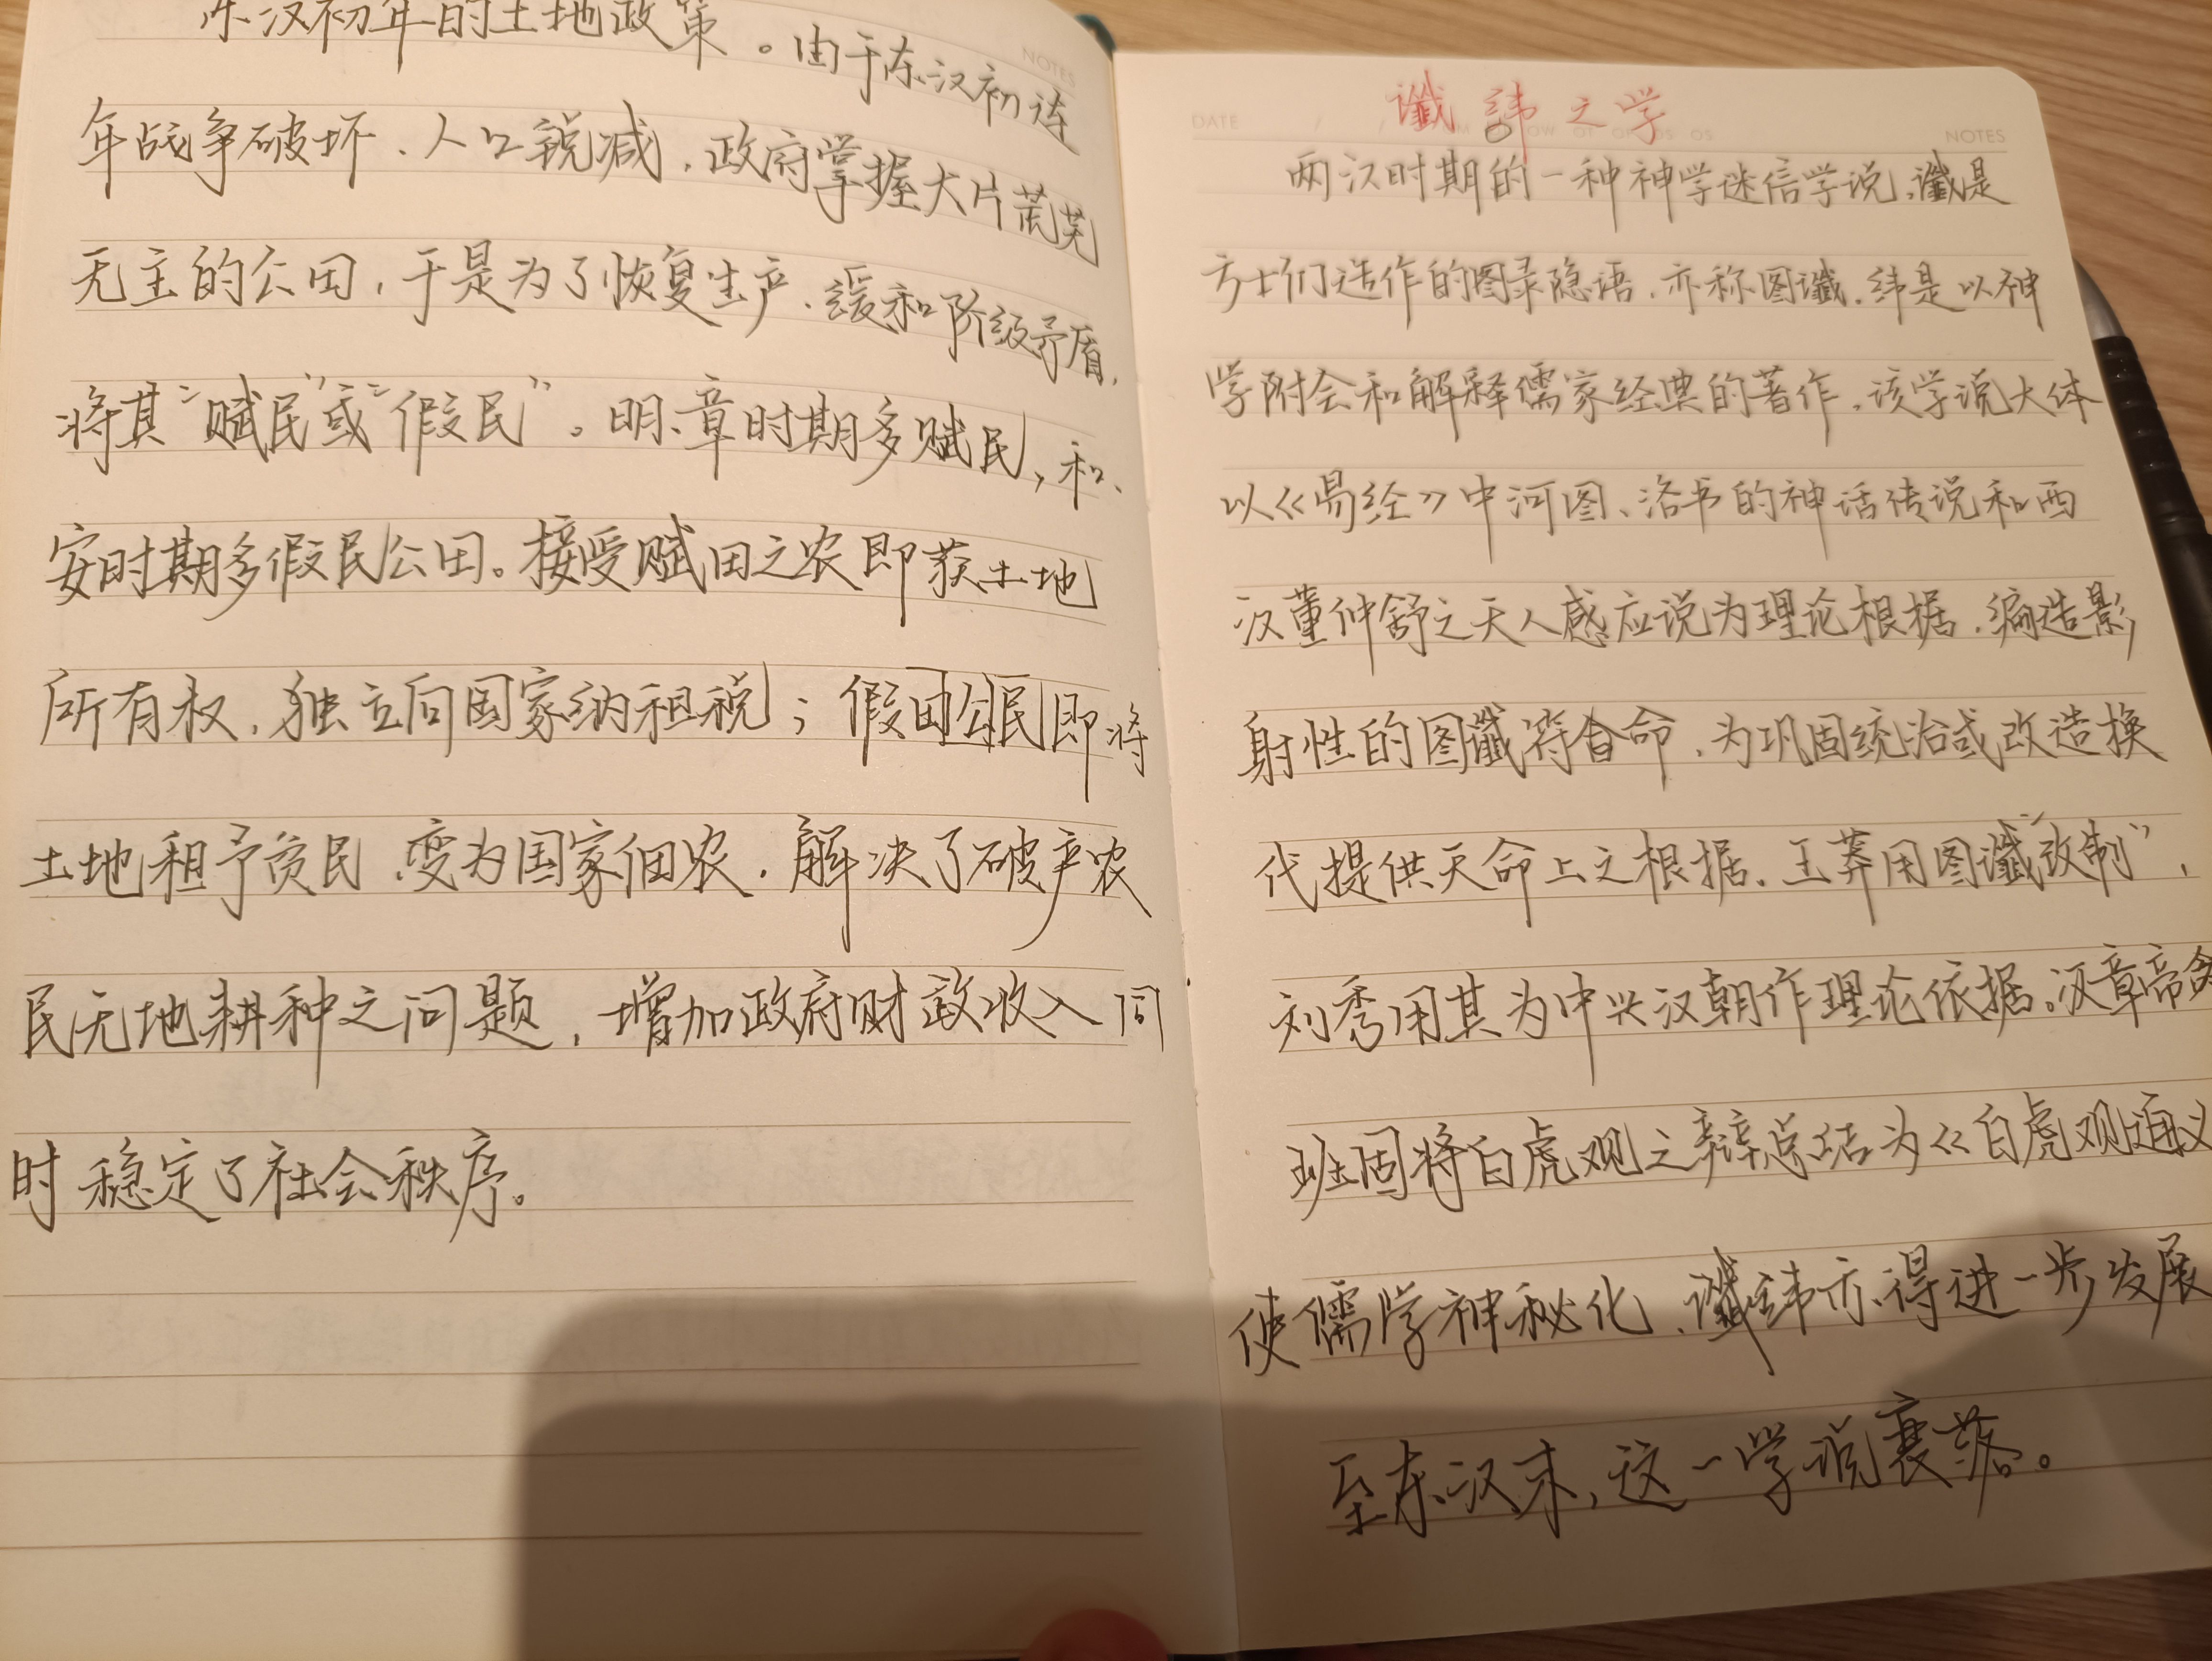 东汉初年的土地政策。由于东汉初连
年战争破坏,人口锐减,政府掌握大片荒芜
无主的公田,于是为了恢复生产,缓和阶级矛盾,
将其“赋民”或“假民”。明、章时期多赋民,和、
安时期多假民公田。接受赋田之农即获土地
所有权,独立向国家纳租税;假田公民即将
土地租予贫民,变为国家佃农,解决了破产农
民无地耕种之问题,增加政府财政收入同
时稳定了社会秩序。
NOTES
DATE
NOTES
谶纬之学
两汉时期的一种神学迷信学说,谶是
方士们造作的图录隐语,亦称图谶,纬是以神
学附会和解释儒家经典的著作,该学说大体
以《易经》中河图、洛书的神话传说和西
汉董仲舒之天人感应说为理论根据,编造影
射性的图谶符命,为巩固统治或改造换
代提供天命上之根据,王莽用图谶“改制”,
刘秀用其为中兴汉朝作理论依据。汉章帝命
班固将白虎观之辩总结为《白虎观通义
使儒学神秘化,谶纬亦得进一步发展
至东汉末,这一学说衰落。